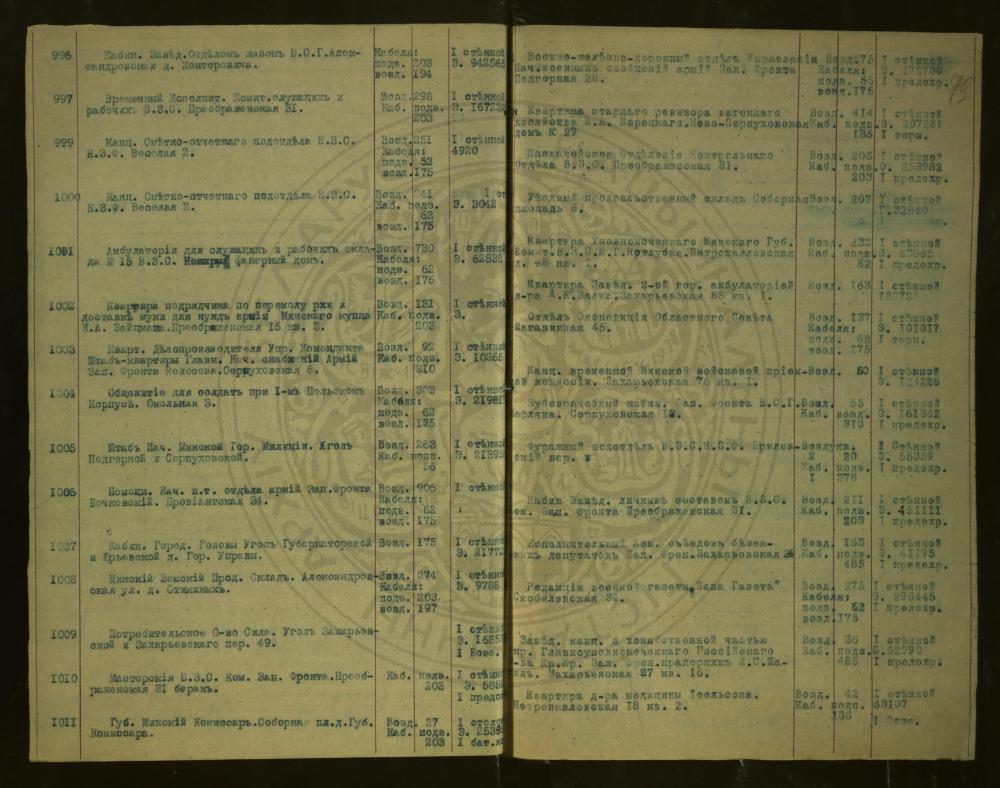 996 Кабин. Завѣд.Отдѣломъ лавокъ В.С.Г.Алек- Кабеля: I стѣнной
сандровская д. Конторовича. подв. 203 Э. 942565
возд. 194
997 Временный Исполнит. Комит.служащихъ и Возд.298 I стѣнной
рабочихъ В.З.С. Преображенская 31. Каб. подв.
203
999 Канц. Смѣтно-отчетнаго подотдѣла В.З.С. Возд.251 I стѣнной
К.З.Ф. Веселая 2. Кабеля: 4920
подв. 52
возд.175
1000 Канц. Смѣтно-отчетнаго подотдѣла В.З.С. Возд. 241
К.З.Ф. Веселая 2. Каб. подв. Э. 3042
62
возд. 175
1001 Амбулаторія для служащихъ и рабочихъ скла- Возд. 730 I стѣнной
да № 15 В.З.С. фанерный домъ. Кабеля: Э. 62838
подв. 62
возд. 175
1002 Квартира подрядчика по перемолу ржи и Возд. 131 I стѣнной
доставкѣ муки для нуждъ арміи Минскаго купца Каб. подв. Э.
И.А. Зайцмана.Преображенская 15 кв. 3. 203
1003 Кварт. Дѣлопроизводителя Упр. Коменданта Возд. 92 I стѣнной
Штабъ-квартиры Главн. Нач. снабженій Армій Каб. подв. Э. 10365
Зап. Фронта Колосова.Серпуховская 6. 210
1004 Общежитіе для солдатъ при I-мъ Польскомъ Возд. 303 I стѣнной
Корпусѣ. Окольная 3. Кабеля: Э. 21981
подв. 62
возд. 175
1005 Штабъ Нач. Минской Гор. Милиціи. Уголъ Возд. 263 I стѣнной
Подгорной и Серпуховской. Каб. подв. Э. 21395
56
1006 Помощн. Нач. п.т. отдѣла армій Зап.Фронта Возд. 906 I стѣнной
Бочковскій. Провіантская 34. Кабеля:
подв. 62
возд. 175
1007 Кабин. Город. Головы Уголъ Губернаторской Возд. 175 I стѣнной
и Юрьевской д. Гор. Управы. Э. 21772
1008 Минскій Земскій Прод. Складъ. Александров- Возд. 274 I стѣнной
ская ул. д. Кабеля: Э. 9788
подв. 203.
возд. 197
1009 Потребительское О-во Сила. Уголъ Захарьев- I стѣнной
ской и Захарьевскаго пер. 49. Э. 1685
I Бозе.
1010 Мастерскія В.З.С. Ком. Зап. Фронта.Преоб- Каб. подв. I стѣнной
раженская 31 баракъ. 203 Э. 5850
I предо
1011 Губ. Минскій Комиссаръ.Соборная пл.д.Губ. Возд. 27 I столо
Комиссара. Каб. подв. Э. 2539
203 I бат.
Военно-желѣзно-дорожный отдѣлъ Управленія Возд.73 I стѣнной
Нач.военныхъ сообщеній армій Зап. Фронта Кабеля: Э. 172700
Подгорная 20. подв. 56 I предохр.
возд.175
Квартира старшаго ревизора вагоннаго Возд. 414 I стѣнной
хозяйства Корецкаго.Ново-Серпуховская Каб. подв. Э. 207281
домъ № 29 135 I терм.
Казначейское Отдѣленіе Контрольнаго Возд. 206 I стѣнной
Отдѣла В.З.С. Преображенская 31. Каб. подв. Э. 353982
203 I предохр.
Уѣздный продовольственный складъ Соборная Возд. 207 I стѣнной
площадь 6. 32840
Квартира Уполномоченнаго Минскаго Губ. Возд. 233 I стѣнной
Петропавловская Каб. подв.
д. 18 кв. 1. 62 I предохр.
Квартира Завѣд. 2-ой гор. амбулаторіей Возд. 163 I стѣнной
д-ра А.К.Валис.Захарьевская 65 кв. 1.
Отдѣлъ Экспедиціи Областного Совѣта Возд. 137 I стѣнной
Магазинная 45. Кабеля: Э. 101017
подв. 62 I терм.
возд. 175
Канц. временной Минской войсковой пріем- Возд. 50 I стѣнной
ной комиссіи. Захарьевская 76 кв. 1. Э. 134226
Зубоврачебный кабин. Зап. Фронта В.С.Г. Возд. 55 I стѣнной
Серпуховская 12. Каб. возд. Э. 161362
310 I предохр.
Фуражный подотдѣлъ В.З.С.К.З.Ф. Брилев- Воздушн. I Стѣнной
скій пер. 2 20 Э. 55359
Каб. подв. I предохр.
1 378
Кабин Завѣд. личнымъ составомъ В.З.С. Возд. 211 I стѣнной
Ком. Зап. Фронта Преображенская 31. Каб. подв. Э. 451111
203 I предохр.
Исполнительный Ком. съѣздовъ бѣжен- Возд. 163 I стѣнной
скихъ депутатовъ Зап. Фрон.Захарьевская Каб. подв. Э. 41195
485 I предохр.
Редакція военной газеты „Наша Газета" Возд. 275 I стѣнной
Скобелевская 34. Кабеля: Э. 296445
подв. 62 I предохр.
возд.175
Завѣд. канц. и хозяйственной частью Возд. 36 I стѣнной
пр. Главноуполномоченнаго Россійскаго Каб. подв. Э.62990
-ва Кр.Кр. Зап. Фрон.прапорщикъ А.С.Ша- 485 I предохр.
Захарьевская 37 кв. 16.
Квартира д-ра медицины Іоельсона. Возд. 42 I стѣнной
Петропавловская 18 кв. 2. Каб. подв. 63107
136 I Бозе.